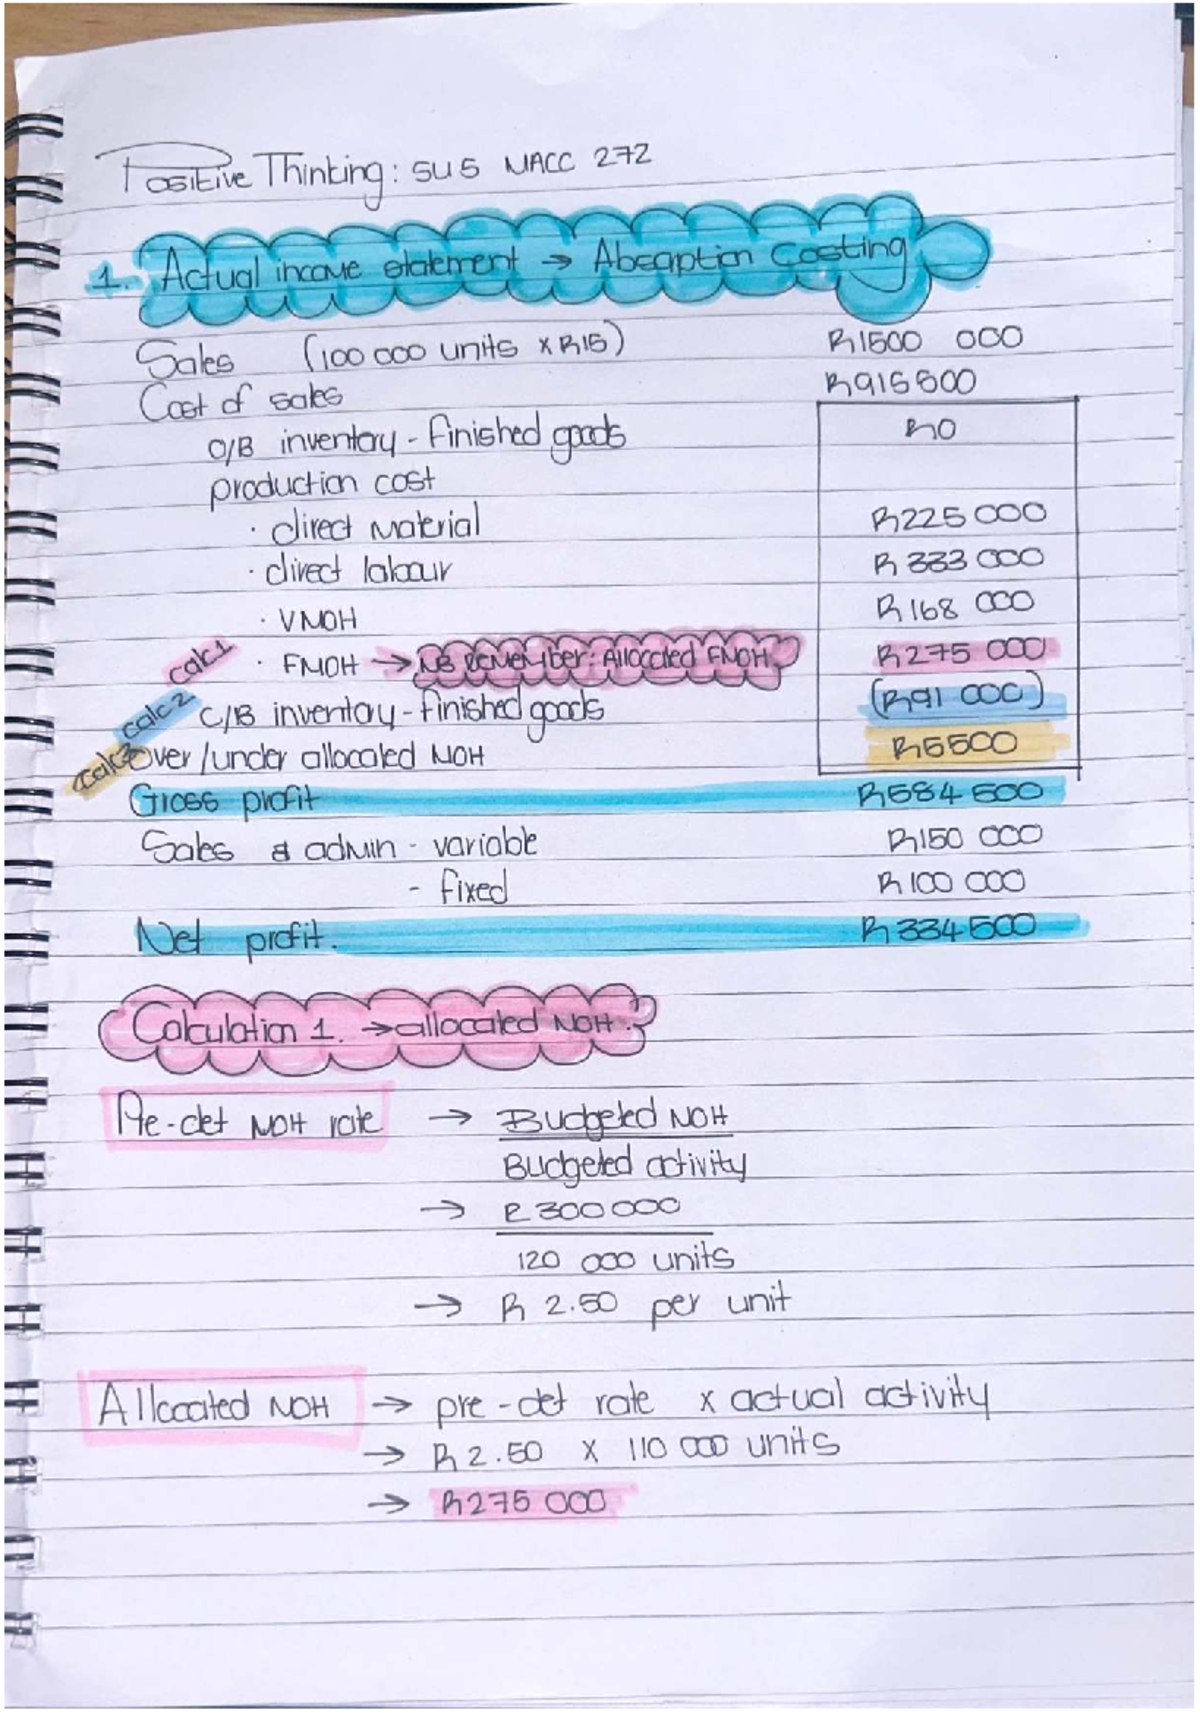 Positive Thinking: SU5 MACC 272
1. Actual income statement → Absorption Costing
Sales (100 000 units x R15) R1500 000
Cost of sales R915500
O/B inventory - finished goods R0
production cost
· direct material R225 000
· direct labour R 333 000
· VMOH R168 000
calc1 · FMOH → NB REMEMBER: Allocated FMOH R275 000
calc2 C/B inventory - finished goods (R91 000)
calc3 Over/under allocated MOH R5500
Gross profit R584 500
Sales & admin - variable R150 000
- fixed R100 000
Net profit. R334 500
Calculation 1. → allocated MOH.
Pre-det MOH rate → Budgeted MOH
Budgeted activity
→ R300000
120 000 units
→ R 2.50 per unit
Allocated MOH → pre-det rate x actual activity
→ R2.50 x 110 000 units
→ R275 000